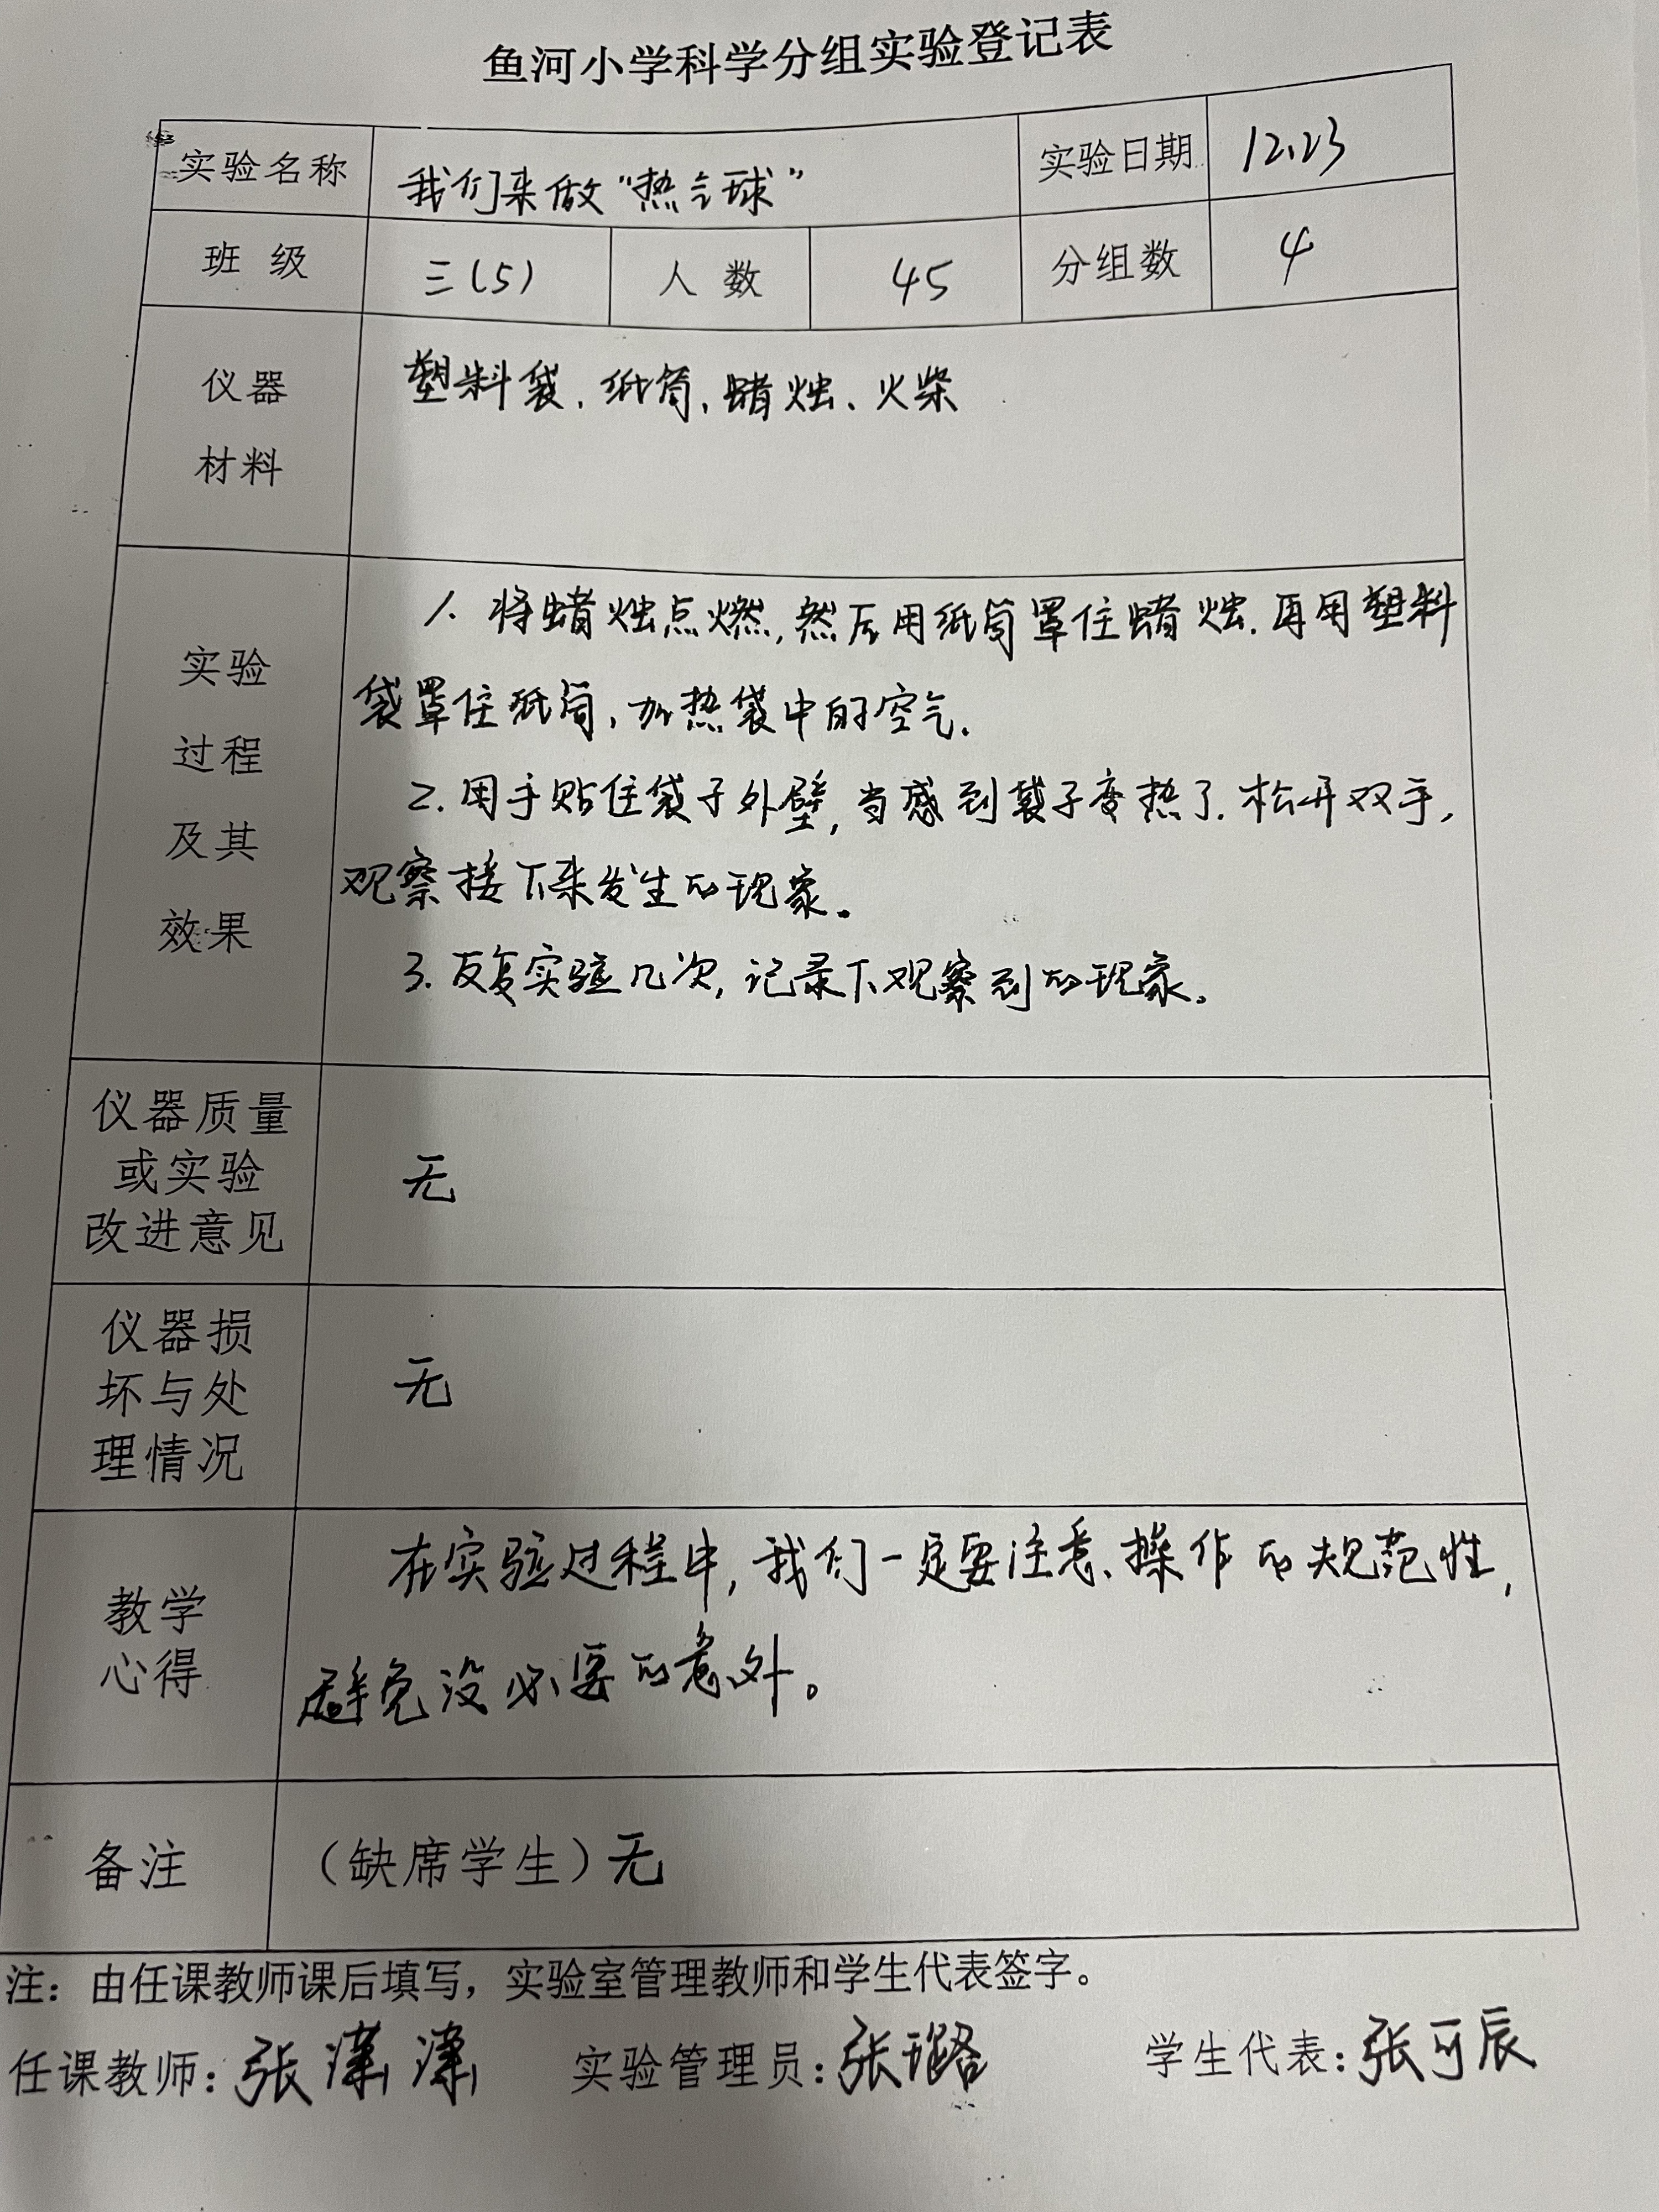 鱼河小学科学分组实验登记表
实验名称 我们来做“热气球” 实验日期 12.23
班 级 三(5) 人 数 45 分组数 4
仪器
材料
塑料袋、纸筒、蜡烛、火柴
实验
过程
及其
效果
1. 将蜡烛点燃,然后用纸筒罩住蜡烛.再用塑料
袋罩住纸筒,加热袋中的空气.
2. 用手贴住袋子外壁,当感到袋子变热了.松开双手,
观察接下来发生的现象。
3. 反复实验几次,记录下观察到的现象。
仪器质量
或实验
改进意见
无
仪器损
坏与处
理情况
无
教学
心得
在实验过程中,我们一定要注意、操作的规范性,
避免没必要的意外。
备注 (缺席学生)无
注:由任课教师课后填写,实验室管理教师和学生代表签字。
任课教师:张潇潇 实验管理员:张璐 学生代表:张可辰